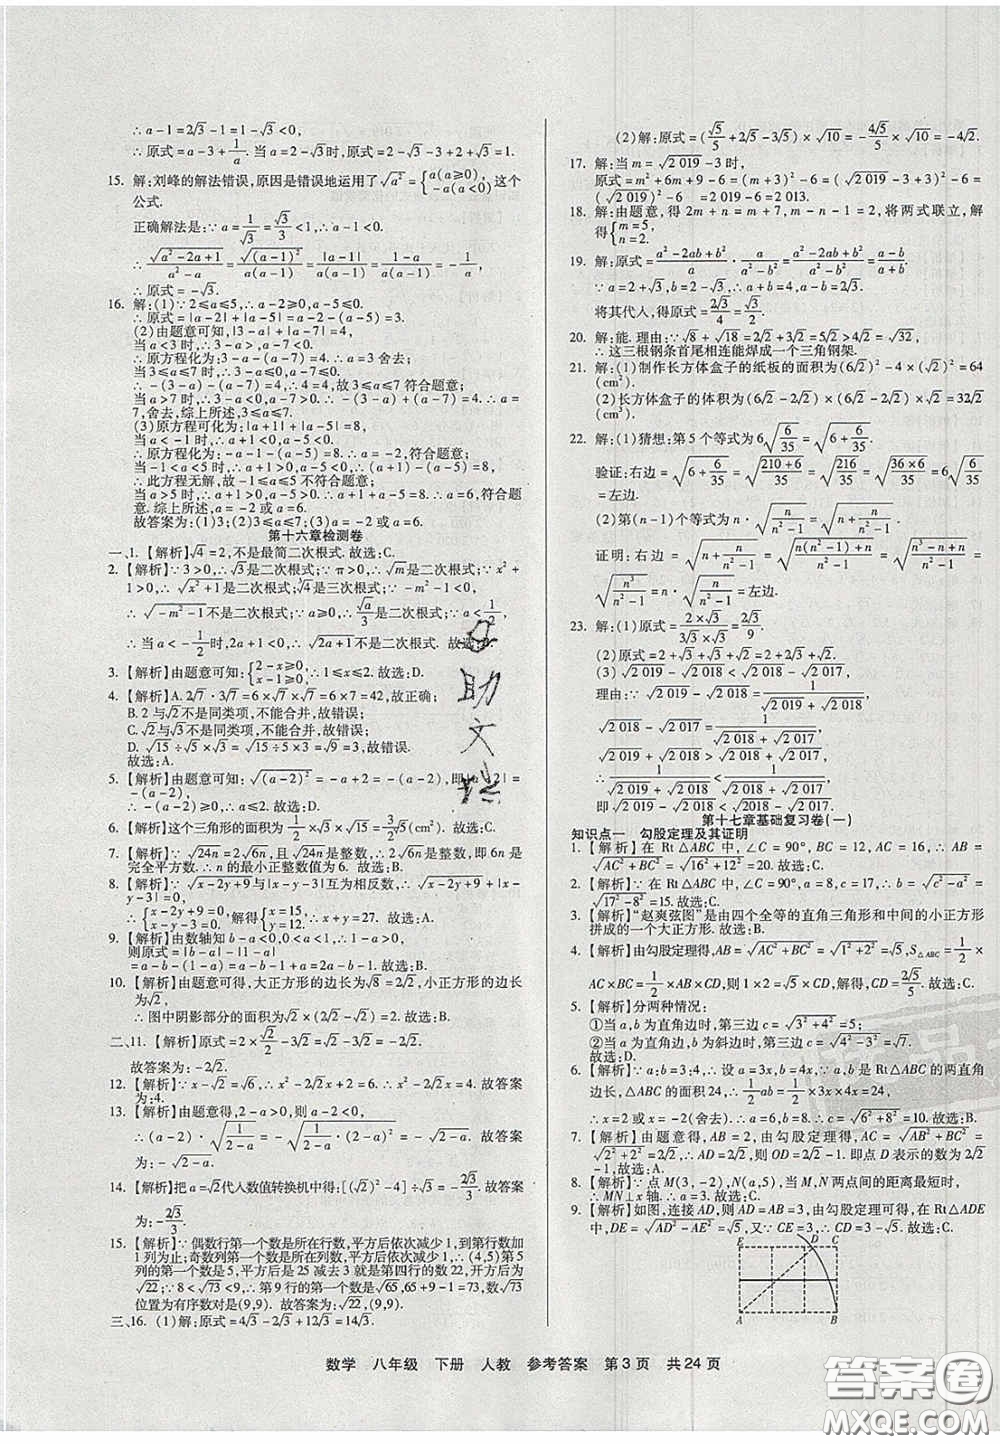 ∴a-1=2-√3-1=1-√3<0,
∴原式=a-3+1/a.当a=2-√3时,原式=2-√3-3+2+√3=1.
15. 解:刘峰的解法错误,原因是错误地运用了√a²={a(a≥0) -a(a<0)这个
公式.
正确解法是:∵a=1/√3=√3/3<1,
∴√(a²-2a+1)/(a²-a)=√(a-1)²/a(a-1)=|a-1|/a(a-1)=-1/a=-√3
16. 解:(1)∵2≤a≤5,∴a-2≥0,a-5≤0,
∴原式=|a-2|+|a-5|=a-2-(a-5)=3.
(2)由题意可知,|3-a|+|a-7|=4,
当a<3时,∴3-a>0,a-7<0,
∴原方程化为:3-a-(a-7)=4,∴a=3舍去;
当3≤a≤7时,∴3-a≤0,a-7≤0,
∴-(3-a)-(a-7)=4,故3≤a≤7符合题意;
当a>7时,∴3-a<0,a-7>0,∴-(3-a)+(a-7)=4,∴a=
7,舍去,综上所述,3≤a≤7.
(3)原方程可化为:|a+1|+|a-5|=8,
当a<-1时,∴a+1<0,a-5<0,
∴原方程化为:-a-1+5-a=8,∴a=-2,符合题意;
当-1≤a<5时,∴a+1≥0,a-5<0,∴(a+1)-(a-5)=8,
∴此方程无解,故-1≤a<5不符合题意;
当a≥5时,∴a+1>0,a-5≥0,∴a+1+a-5=8,∴a=6,符合题
意.综上所述,a=-2或a=6.
故答案为:(1)3;(2)3≤a≤7;(3)a=-2或a=6.
第十六章检测卷
一、1. 【解析】√4=2,不是最简二次根式.故选:C.
2. 【解析】∵3>0,∴√3是二次根式;∵π>0,∴√π是二次根式;∵x²+
1>0,∴√(x²+1)是二次根式;∛4是三次根式;∵-m²-1<0,
∴√(-m²-1)不是二次根式;∵a≥0,∴√a/3是二次根式;∵a<1/2,
∴当a<-1/2时,2a+1<0,∴√(2a+1)不是二次根式.故选:
3. 【解析】由题意可知:{2-x≥0, x-1≥0,∴1≤x≤2.故选:D.
4. 【解析】A.2√7·3√7=6×√7×√7=6×7=42,故正确;
B.2与√2不是同类项,不能合并,故错误;
C.√2与√5不是同类项,不能合并,故错误;
D.√15÷√5×√3=√(15÷5×3)=√9=3,故错误.
故选:A.
5. 【解析】由题意可知:√(a-2)²=-a+2=-(a-2),即|a-2|=
-(a-2),∴a-2≤0,∴a≤2.故选:D.
6. 【解析】这个三角形的面积为1/2×√3×√15=3√5/2(cm²).故选:C.
7. 【解析】∵√24n=2√6n,且√24n是整数,∴2√6n是整数,即6n是
完全平方数.∴n的最小正整数值为6.故选:C.
8. 【解析】∵√(x-2y+9)与|x-y-3|互为相反数,∴√(x-2y+9)+|x
-y-3|=0,
∴{x-2y+9=0, x-y-3=0,解得{x=15, y=12,∴x+y=27.故选:D.
9. 【解析】由数轴知b-a<0,a-1<0,
则原式=|b-a|-|1-a|
=a-b-(1-a)=a-b-1+a=2a-b-1.故选:B.
10. 【解析】由题意可得,大正方形的边长为√8=2√2,小正方形的边长
为√2,
∴图中阴影部分的面积=√2×(2√2-√2)=2.故选:B.
二、11. 【解析】原式=2×√2/2-3√2=√2-3√2=-2√2.
故答案为:-2√2.
12. 【解析】∵x-√2=√6,∴x=√2+√6,∴x²-2√2x=4.故答案
为:4.
13. 【解析】由题意得,2-a>0,则a-2<0,
∴(a-2)·√(1/(2-a))=-√(1/(2-a)·(2-a)²)=-√(2-a).故答案
为:-√(2-a).
14. 【解析】把a=√2代入数值转换机中得:[(√2)²-4]÷√3=-2√3/3.故答案
为:-2√3/3.
15. 【解析】∵偶数行第一个数是所在行数,平方后依次减少1,到第行数加
1列为止;奇数列第一个数是所在列数,平方后依次减少1,∴(4,5)第5
列第一个数是5,平方后是25减去3就是第四行的数22,开方后为
√22;∵8<√73<9,∴第9行的第一个数是√65,65+9-1=73,数
位置为有序数对是(9,9).故答案为:√22,(9,9).
三、16. (1)解:原式=4√3-2√3+12√3=14√3.
(2)解:原式=(√5/5+2√5-3√5)×√10=-4√5/5×√10=-4√2.
17. 解:当m=√2 019-3时,
原式=m²+6m+9-6=(m+3)²-6=(√2 019-3+3)²-6=
(√2 019)²-6=2 019-6=2 013.
18. 解:由题意,得2m+n=m+7,m-n-1=2,将两式联立,解
得{m=5, n=2.
19. 解:原式=(a²-2ab+b²)/a·a/(a²-b²)=(a²-2ab+b²)/(a²-b²)=(a-b)/(a+b).
∵a=2+√3,b=2-√3,∴a+b=4,a-b=2√3.
将其代入,得原式=2√3/4=√3/2.
20. 解:能.理由:∵√8+√18=2√2+3√2=5√2>4√2=√32,
∴这三根钢条首尾相连能焊成一个三角钢架.
21. 解:(1)制作长方体盒子的纸板的面积为(6√2)²-4×(√2)²=64
(cm²).
(2)长方体盒子的体积为(6√2-2√2)(6√2-2√2)×√2=32√2
(cm³)
22. 解:(1)猜想:第5个等式为6√(6/35)=√(6+6/35).
验证:右边=√(6+6/35)=√((210+6)/35)=√(216/35)=√((36×6)/35)=6√(6/35)
=左边.
(2)第(n-1)个等式为n√(n/(n²-1))=√(n+n/(n²-1)).
证明:右边=√(n+n/(n²-1))=√((n(n²-1)+n)/(n²-1))=√((n³-n+n)/(n²-1))
=√(n³/(n²-1))=n√(n/(n²-1))=左边.
23. 解:(1)原式=2×√3/3√3×√3=2√3/9.
(2)原式=2+√3+√2-1=1+√3+√2.
(3)√2 019-√2 018<√2 018-√2 017
理由:∵√2 019-√2 018=1/(√2 019+√2 018),
√2 018-√2 017=1/(√2 018+√2 017),
√2 019+√2 018>√2 018+√2 017,
∴1/(√2 019+√2 018)<1/(√2 018+√2 017),
即√2 019-√2 018<√2018-√2 017.
第十七章基础复习卷(一)
知识点一 勾股定理及其证明
1. 【解析】在Rt△ABC中,∠C=90°,BC=12,AC=16,∴AB=
√(AC²+BC²)=√(16²+12²)=20.故选:C.
2. 【解析】∵在Rt△ABC中,∠C=90°,a=8,c=17,∴b=√(c²-a²)=
√(17²-8²)=15.故选:C.
3. 【解析】“赵爽弦图”是由四个全等的直角三角形和中间的小正方形
拼成的一个大正方形.故选:B.
4. 【解析】由勾股定理得,AB=√(AC²+BC²)=√(1²+2²)=√5,S△ABC=1/2×
AC×BC=1/2×AB×CD,则1×2=√5×CD,解得,CD=2√5/5.故选:C.
5. 【解析】分两种情况:
①当a,b为直角边时,第三边c=√(3²+4²)=5;
②当a为直角边,b为斜边时,第三边c=√(4²-3²)=√7,
故选:D.
6. 【解析】∵a:b=3:4,∴设a=3x,b=4x,∵a,b是Rt△ABC的两直角
边长,△ABC的面积24,∴1/2ab=1/2×3x×4x=24,
∴x=2或x=-2(舍去).∴a=6,b=8.∴c=√(6²+8²)=10.故选:B.
7. 【解析】由题意得,AB=2,由勾股定理得,AC=√(AB²+BC²)=
√(2²+2²)=2√2,∴AD=2√2,则OD=2√2-2.即点D表示的数为2√2
-2.故选:A.
8. 【解析】∵点M(3,-2),N(a,5),当M、N两点间的距离最短时,
∴MN⊥x轴.∴a=3.故选:C.
9. 【解析】如图,连接AD,则AD=AB=3,由勾股定理可得,在Rt△ADE
中,DE=√(AD²-AE²)=√5,又∵CE=3,∴CD=3-√5,故选:C.
E D C
A B
数学 八年级 下册 人教 参考答案 第3页 共24页
答案圈
MXQE.COM